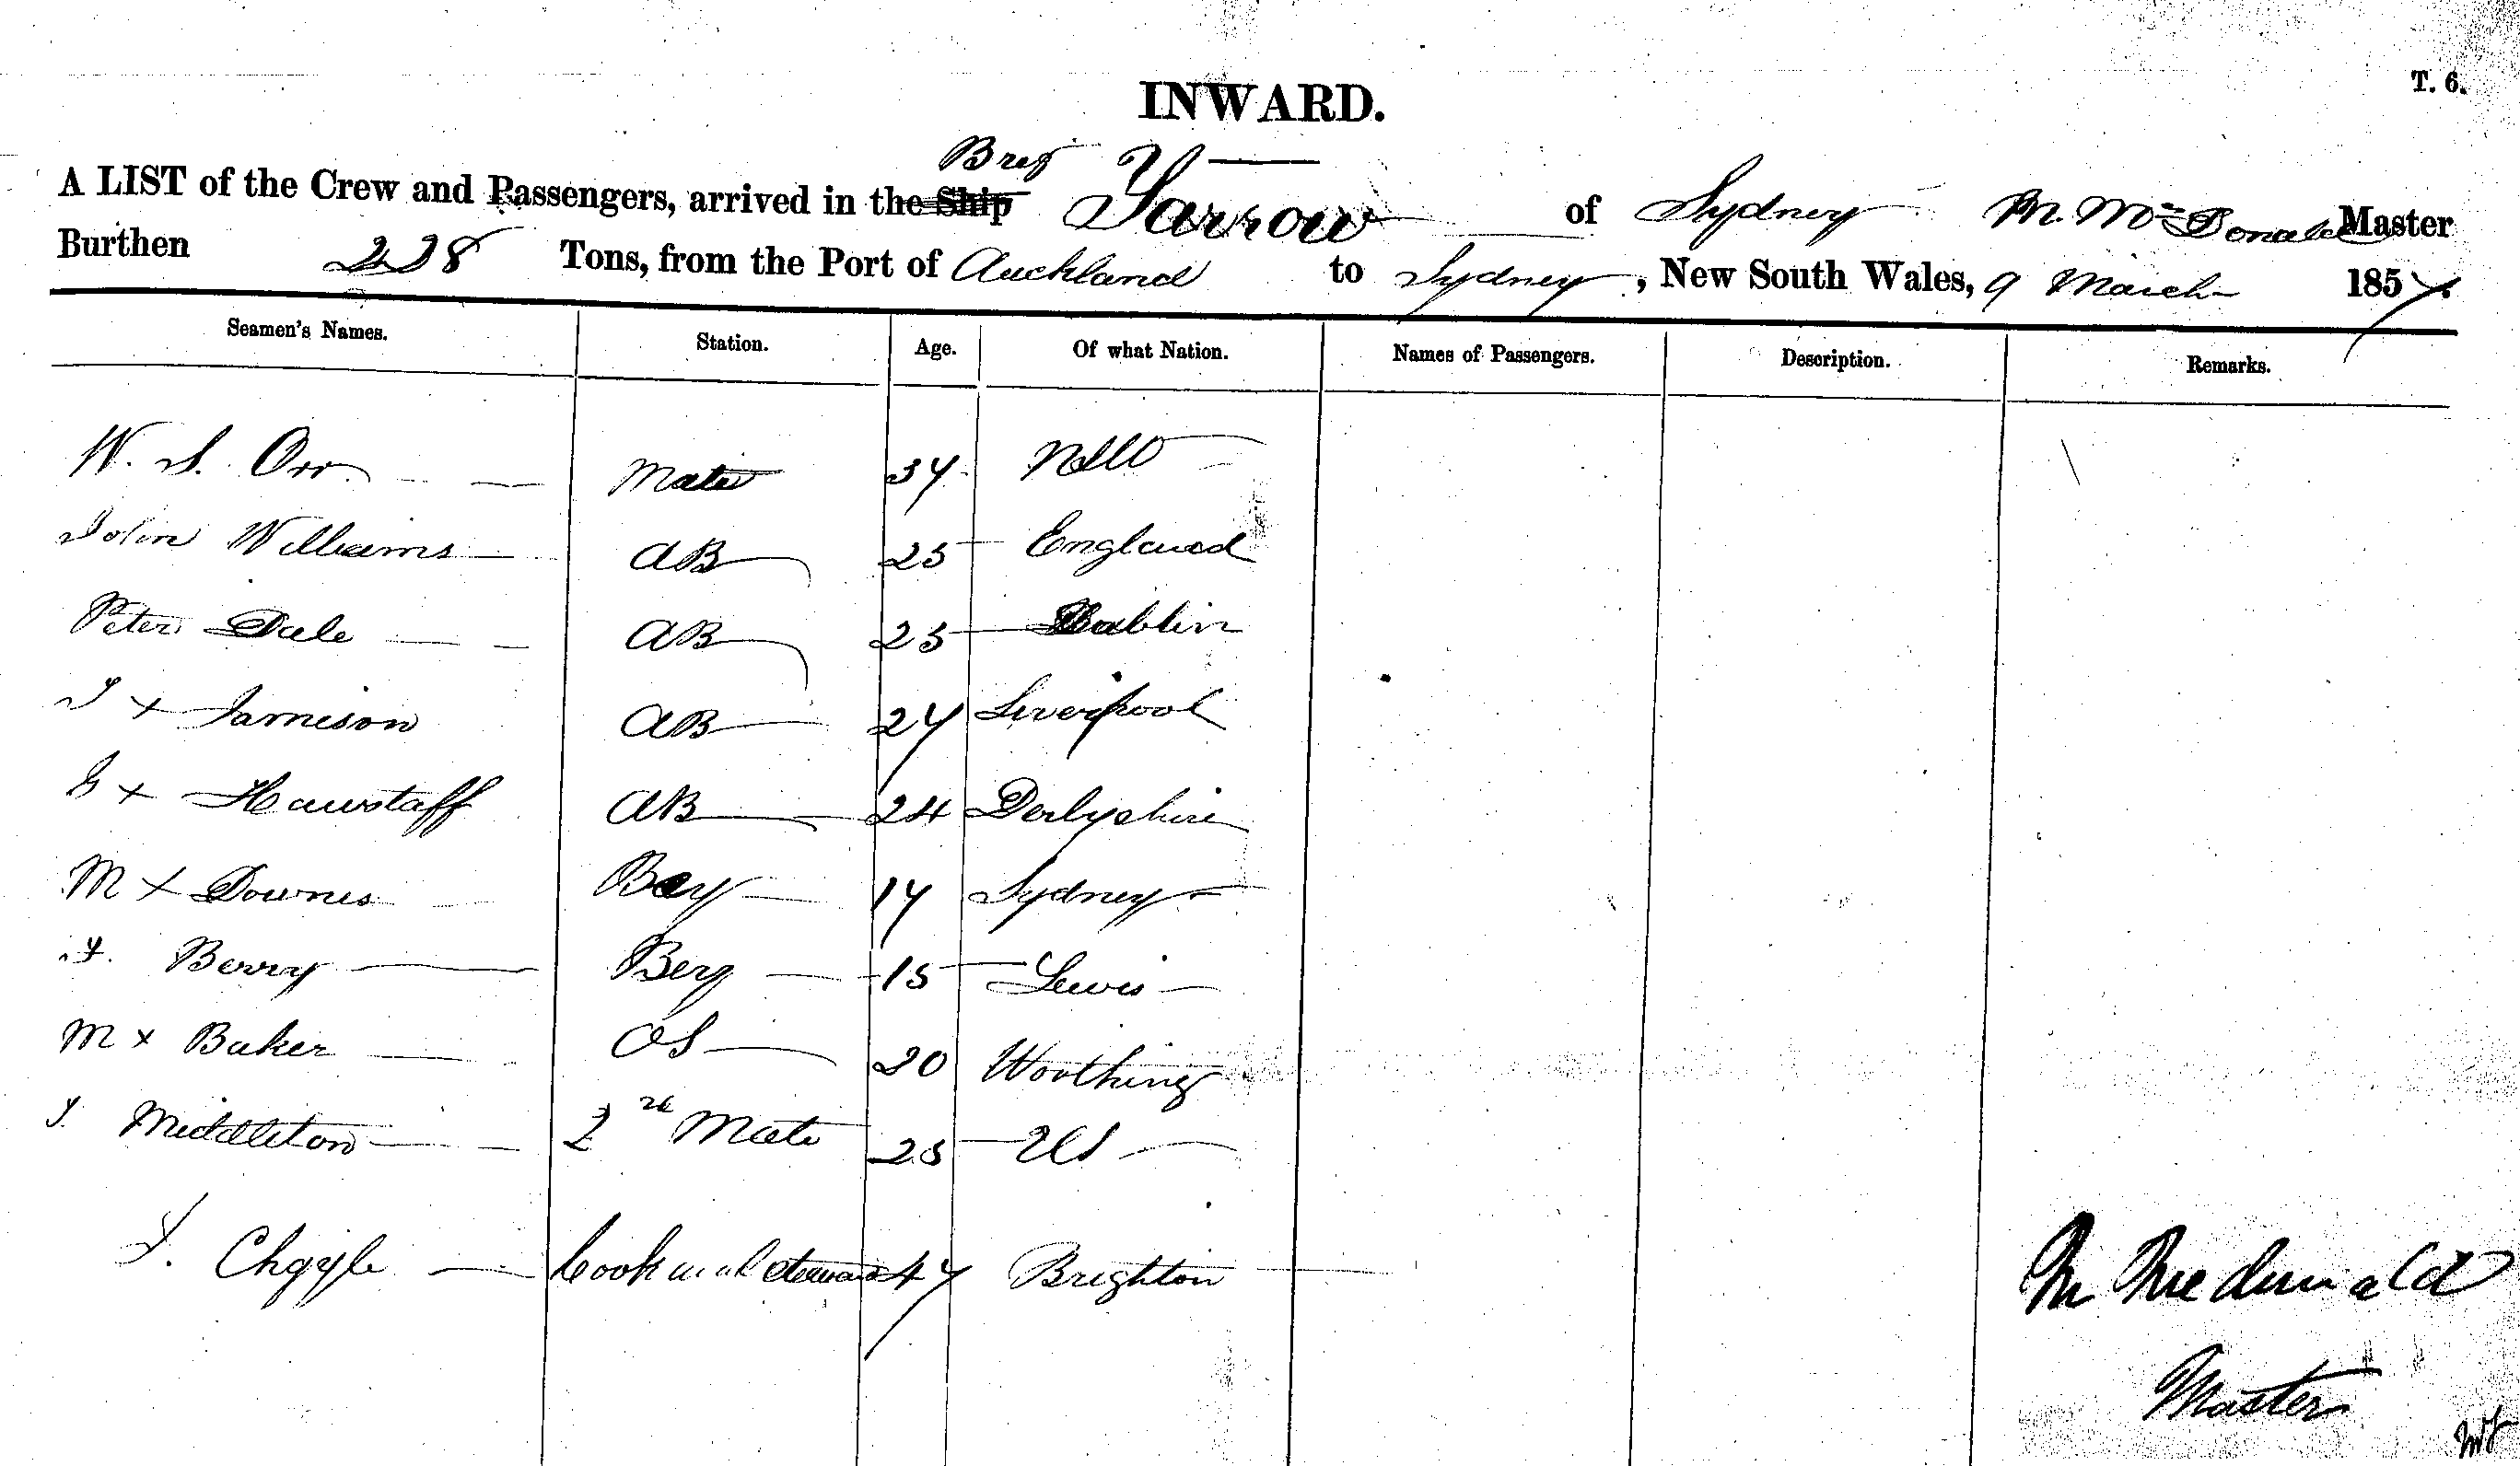 T. 6.
INWARD.
Brig
A LIST of the Crew and Passengers, arrived in the Ship Yarrow of Sydney M. McDonald Master
Burthen 238 Tons, from the Port of Auckland to Sydney, New South Wales, 9 March 1857.
Seamen's Names. Station. Age. Of what Nation. Names of Passengers. Description. Remarks.
W. S. Orr Mate 37 NSW
John Williams AB 25 England
Peter Dale AB 25 Dublin
J x Jamieson AB 27 Liverpool
G x Hawstaff AB 24 Derbyshire
M x Downes Boy 17 Sydney
Berry Boy 15 Lewis
M x Baker OS 20 Worthing
J. Middleton 2nd Mate 25 US
Cook and Steward 47 Brighton
Master